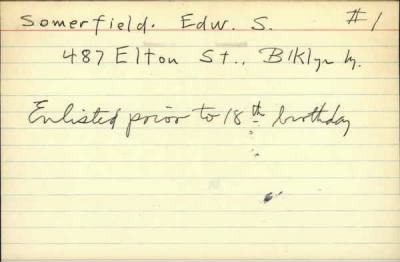 Somerfield. Edw. S. #1
487 Elton St., Bklyn Ny.
Enlisted prior to 18th birthday